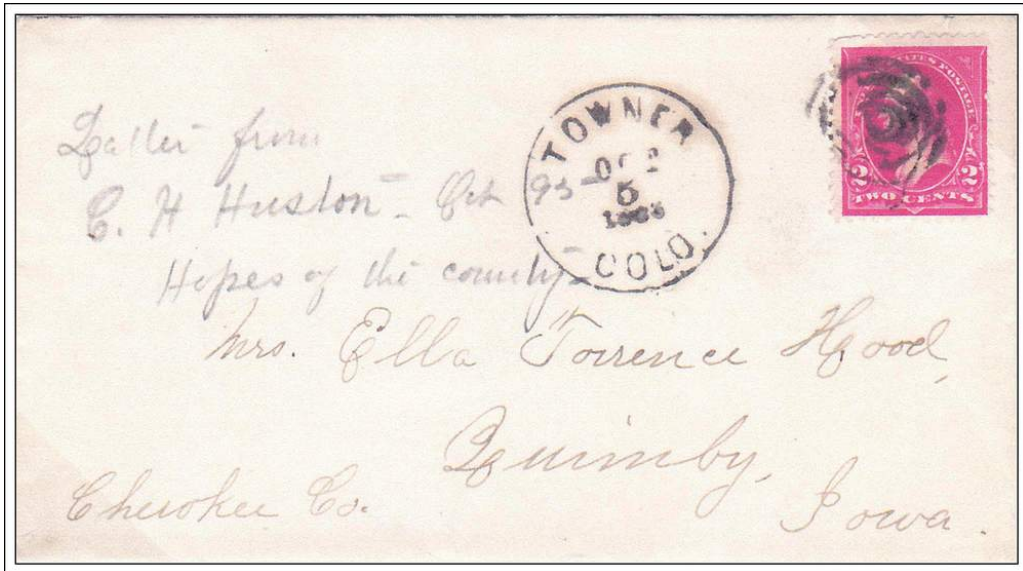 Letter from
C. H Huston - Oct 95 -
Hopes of the county -
TOWNER
5
COLO.
STATES POSTAGE
2 2
TWO CENTS
Mrs. Ella Torrence Hood,
Quimby,
Cherokee Co. Iowa.